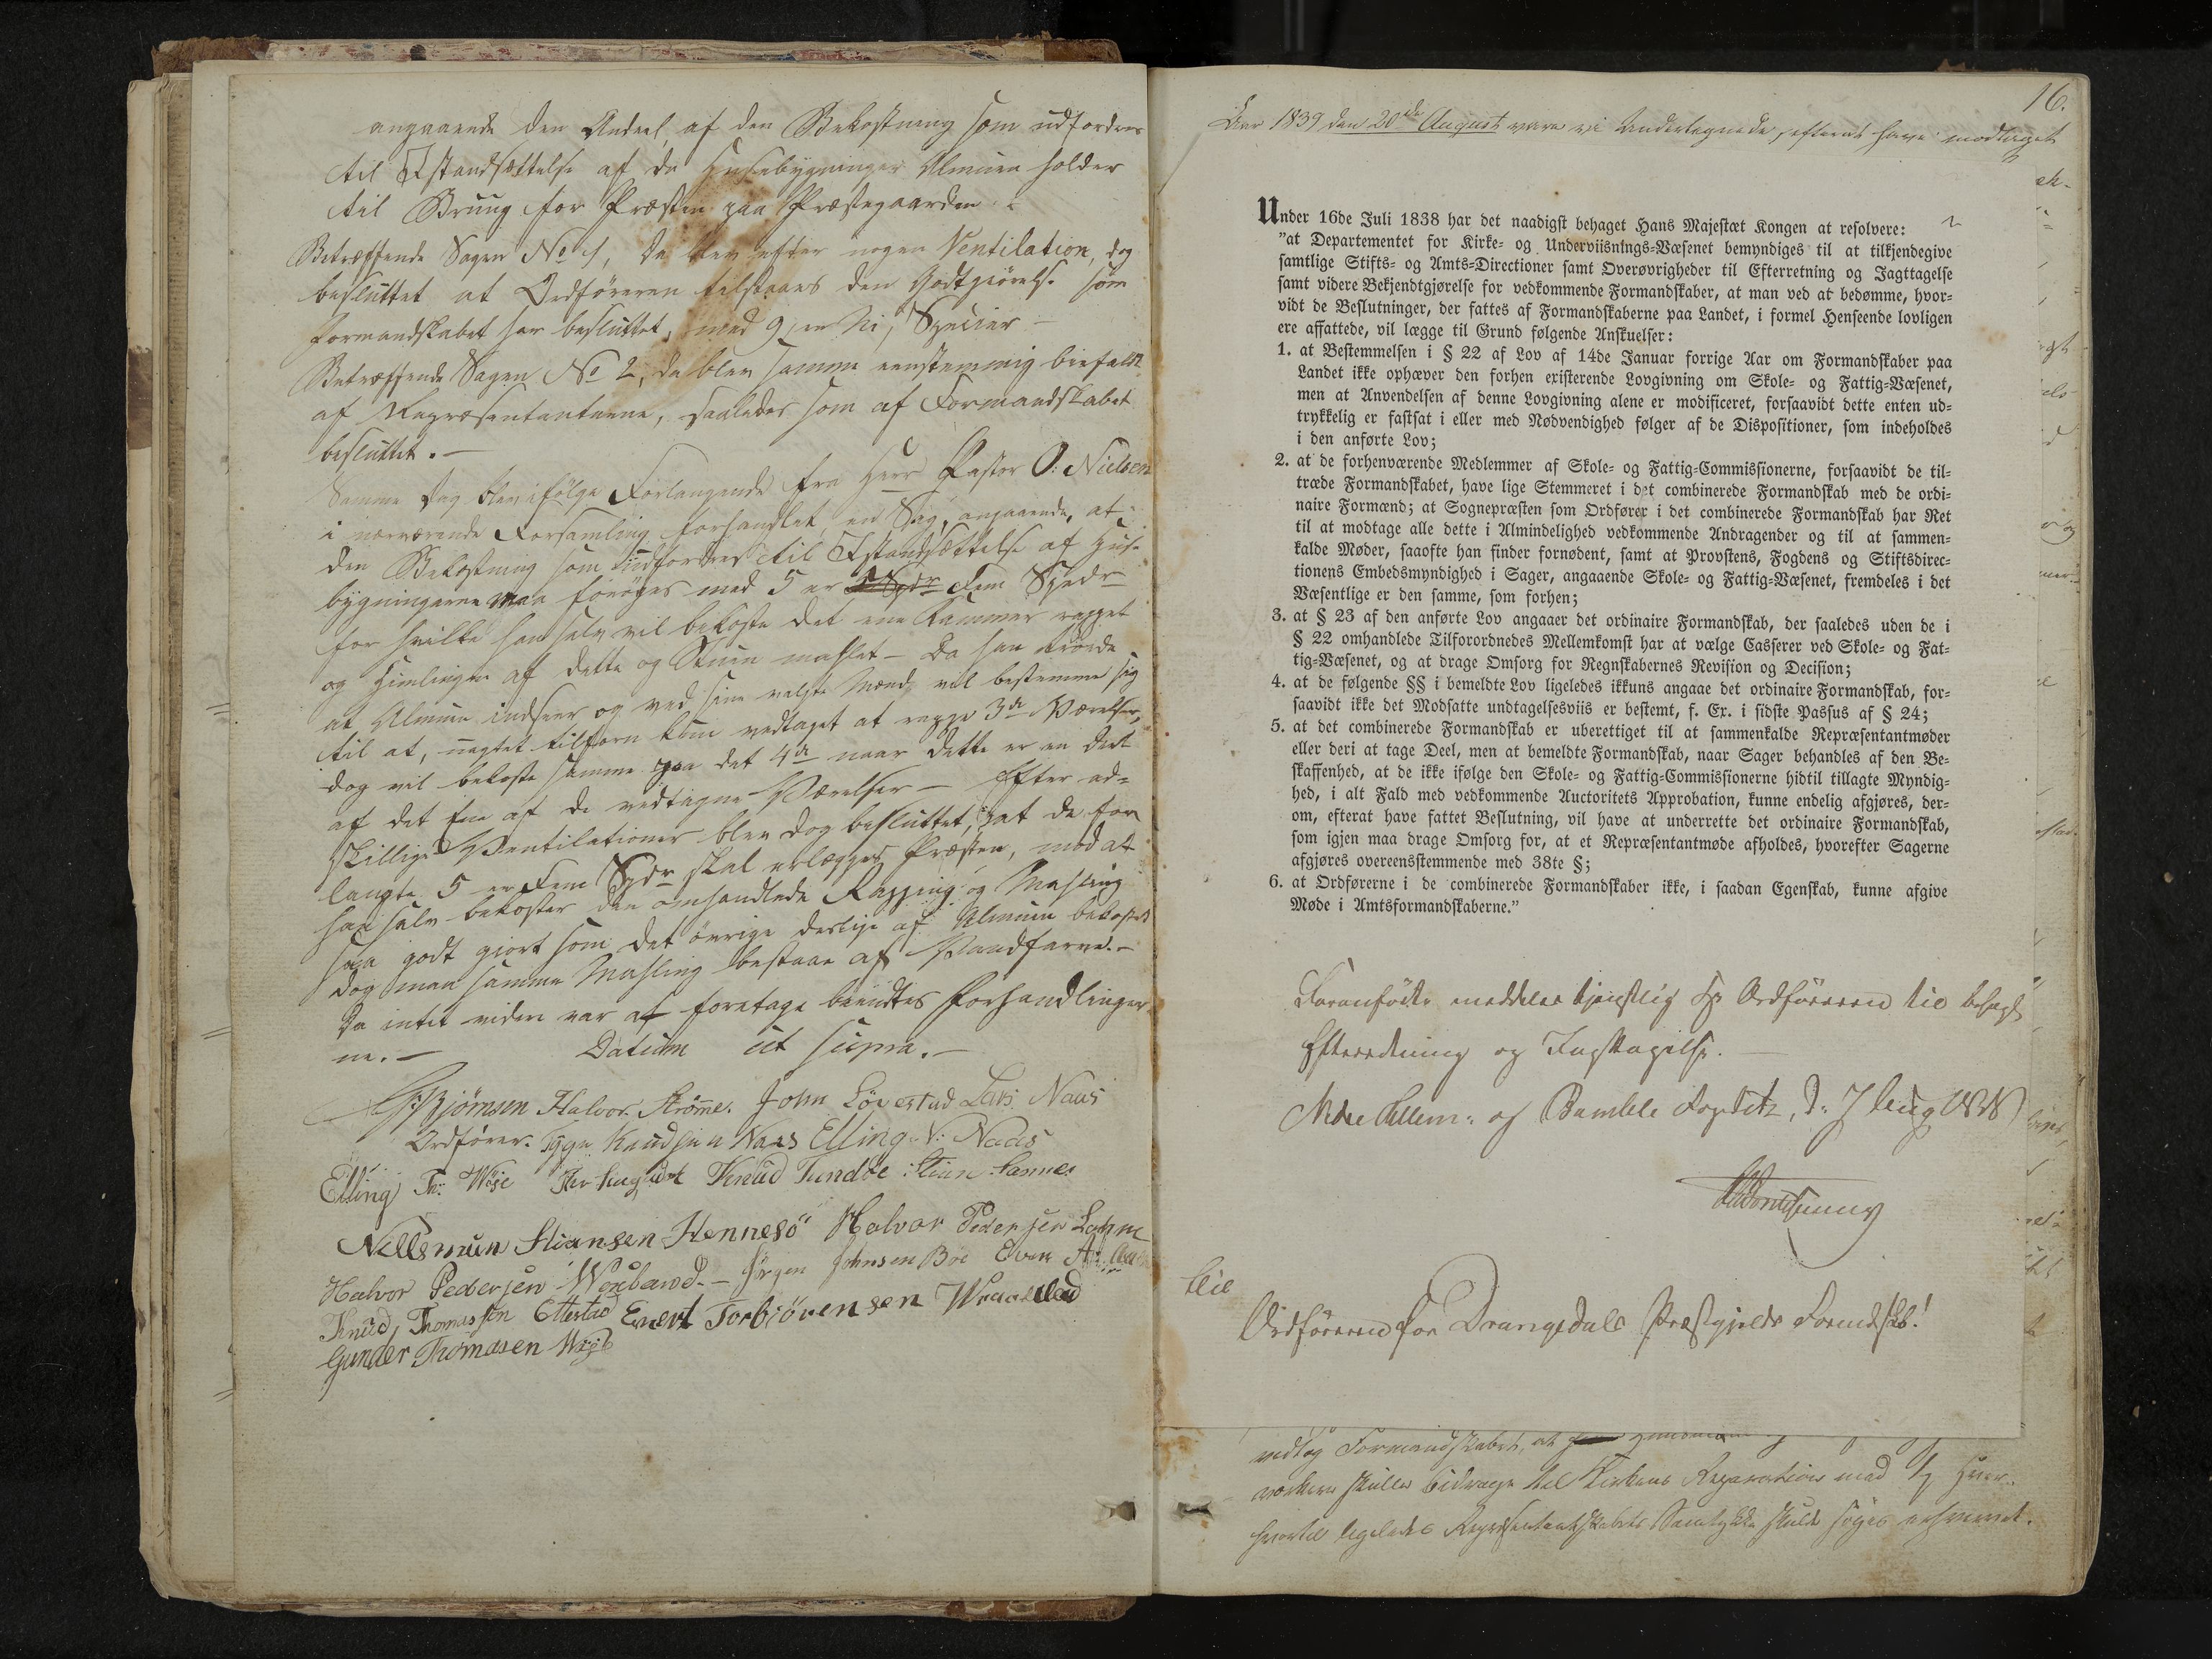 angaaende den Andeel af den Bekostning som udfordres
til Istandsættelse af de Huusebygninger Almuen holder
til Brug for Præsten paa Præstegaarden
Betræffende Sagen No 1, da blev efter nogen Ventilation, dog
besluttet at Ordføreren tilstaaes den Godtgjørelse som
Formandskabet har besluttet, med 9, er Ni, Specier –
Betræffende Sagen No 2, da blev samme eenstemmig biefaldt
af Repræsentanterne, saaledes som af Formandskabet
besluttet. –
Samme Dag blev ifølge Forlangende fra Herr Pastor O: Nielsen
i nærværende Forsamling forhandlet en Sag, angaaende, at
den Bekostning som udfordres til Istandsættelse af Huse
bygningerne maa forøges med 5 er Fem Spdr
for hvilke han selv vil bekoste det ene Kammer rappet
og Himlingen af dette og Stuen mahlet – Da han troede
at Almuen indseer og ved sine valgte Mænd vil bestemme sig
til at, uagtet tilforn kun vedtaget at rappe 3de Værelser,
dog vil bekoste samme paa det 4de naar dette er en Deel
af det Ene af de vedtagne Værelser – Efter ad-
skillige Ventilationer blev dog besluttet, at de for
langte 5 er Fem Spdr skal erlægges Præsten, mod at
han selv bekoster den omhandlede Rapping og Mahling
saa godt giort som det øvrige deslige af Almuen bekostes
dog maa samme Mahling bestaae af Vandfarve. –
Da intet videre var at foretage beendtes Forhandlinger
ne. – Datum ut supra. –
G. Bjørnsen Halvor Strømme. John Löverstad Lars Naas
Ordfører. Tyge Knudsen Naas Elling N: Naas
Elling Th: Knud Tundöe Stian Sannes
Stiansen Hennesö Halvor Pedersen
Halvor Pedersen – Jörgen Johnsen Böe Even
Knud Thomassen Ettestad Evert Torbiörensen
Gunder Thomasen
16.
Aar 1839 den 20de August vare vi Undertegnede, efterat have modtaget
Under 16de Juli 1838 har det naadigst behaget Hans Majestæt Kongen at resolvere:
"at Departementet for Kirke- og Underviisnings-Væsenet bemyndiges til at tilkjendegive
samtlige Stifts- og Amts-Directioner samt Overøvrigheder til Efterretning og Iagttagelse
samt videre Bekjendtgjørelse for vedkommende Formandskaber, at man ved at bedømme, hvor-
vidt de Beslutninger, der fattes af Formandskaberne paa Landet, i formel Henseende lovligen
ere affattede, vil lægge til Grund følgende Anskuelser:
1. at Bestemmelsen i § 22 af Lov af 14de Januar forrige Aar om Formandskaber paa
Landet ikke ophæver den forhen existerende Lovgivning om Skole- og Fattig-Væsenet,
men at Anvendelsen af denne Lovgivning alene er modificeret, forsaavidt dette enten ud-
trykkelig er fastsat i eller med Nødvendighed følger af de Dispositioner, som indeholdes
i den anførte Lov;
2. at de forhenværende Medlemmer af Skole- og Fattig-Commissionerne, forsaavidt de til-
træde Formandskabet, have lige Stemmeret i det combinerede Formandskab med de ordi-
naire Formænd; at Sognepræsten som Ordfører i det combinerede Formandskab har Ret
til at modtage alle dette i Almindelighed vedkommende Andragender og til at sammen-
kalde Møder, saaofte han finder fornødent, samt at Provstens, Fogdens og Stiftsdirec-
tionens Embedsmyndighed i Sager, angaaende Skole- og Fattig-Væsenet, fremdeles i det
Væsentlige er den samme, som forhen;
3. at § 23 af den anførte Lov angaaer det ordinaire Formandskab, der saaledes uden de i
§ 22 omhandlede Tilforordnedes Mellemkomst har at vælge Casserer ved Skole- og Fat-
tig-Væsenet, og at drage Omsorg for Regnskabernes Revision og Decision;
4. at de følgende §§ i bemeldte Lov ligeledes ikkuns angaae det ordinaire Formandskab, for-
saavidt ikke det Modsatte undtagelsesviis er bestemt, f. Ex. i sidste Passus af § 24;
5. at det combinerede Formandskab er uberettiget til at sammenkalde Repræsentantmøder
eller deri at tage Deel, men at bemeldte Formandskab, naar Sager behandles af den Be-
skaffenhed, at de ikke ifølge den Skole- og Fattig-Commissionerne hidtil tillagte Myndig-
hed, i alt Fald med vedkommende Auctoritets Approbation, kunne endelig afgjøres, der-
om, efterat have fattet Beslutning, vil have at underrette det ordinaire Formandskab,
som igjen maa drage Omsorg for, at et Repræsentantmøde afholdes, hvorefter Sagerne
afgjøres overeensstemmende med 38te §;
6. at Ordførerne i de combinerede Formandskaber ikke, i saadan Egenskab, kunne afgive
Møde i Amtsformandskaberne."
Foranførte meddeles tjenstlig Hr Ordføreren til behagelig
Efterretning og Iagttagelse. –
Nedre Tellem: og Bamble Fogderie, d: 7 Aug 1838
Til
Ordføreren for Drangedals Præstgjelds Formdskb!
vedtog Formandskabet, at
skulle bidrage til Kirkens Reparation med
hvortil ligeledes Repræsentantskabets Samtykke skulde søges erhvervet.